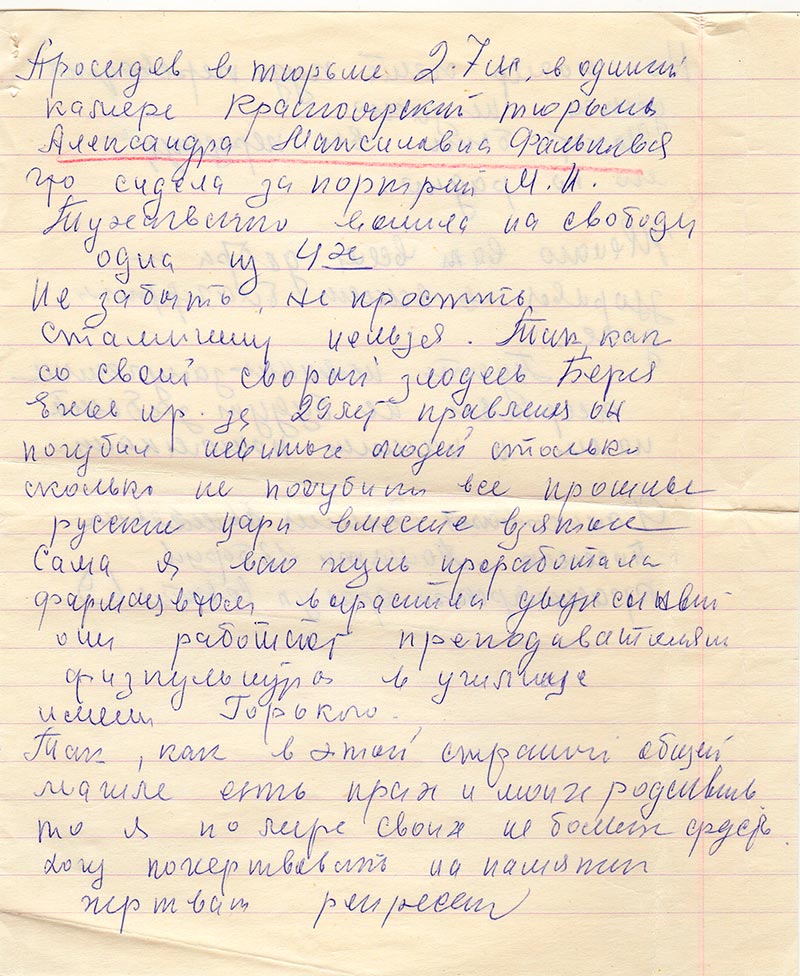 Просидев в тюрьме 27 м. в одиннй
камере Красноярский тюрьмы
Александра Максиловна
что сидела за портрет М. Н.
Тухачевского вышла на свободу
одна из 4х
Не забыть, не простить
сталинину нельзя. Так, как
со своей сворой злодеев Берия
Ежов и пр. за 29 лет правления он
погубил невиных людей столько
сколько не погубили все прошлые
русские цари вместе взятые
Сама я всю жизнь проработала
фармацевтом вырастила двух сыновей
они работают преподавателями
физкультуры в училище
имени Горького.
Так, как в этой страшной общей
могиле есть прах и моих родственв
то я по мере своих не больших средств
хочу пожертвовать на памятник
жертвам репрессии